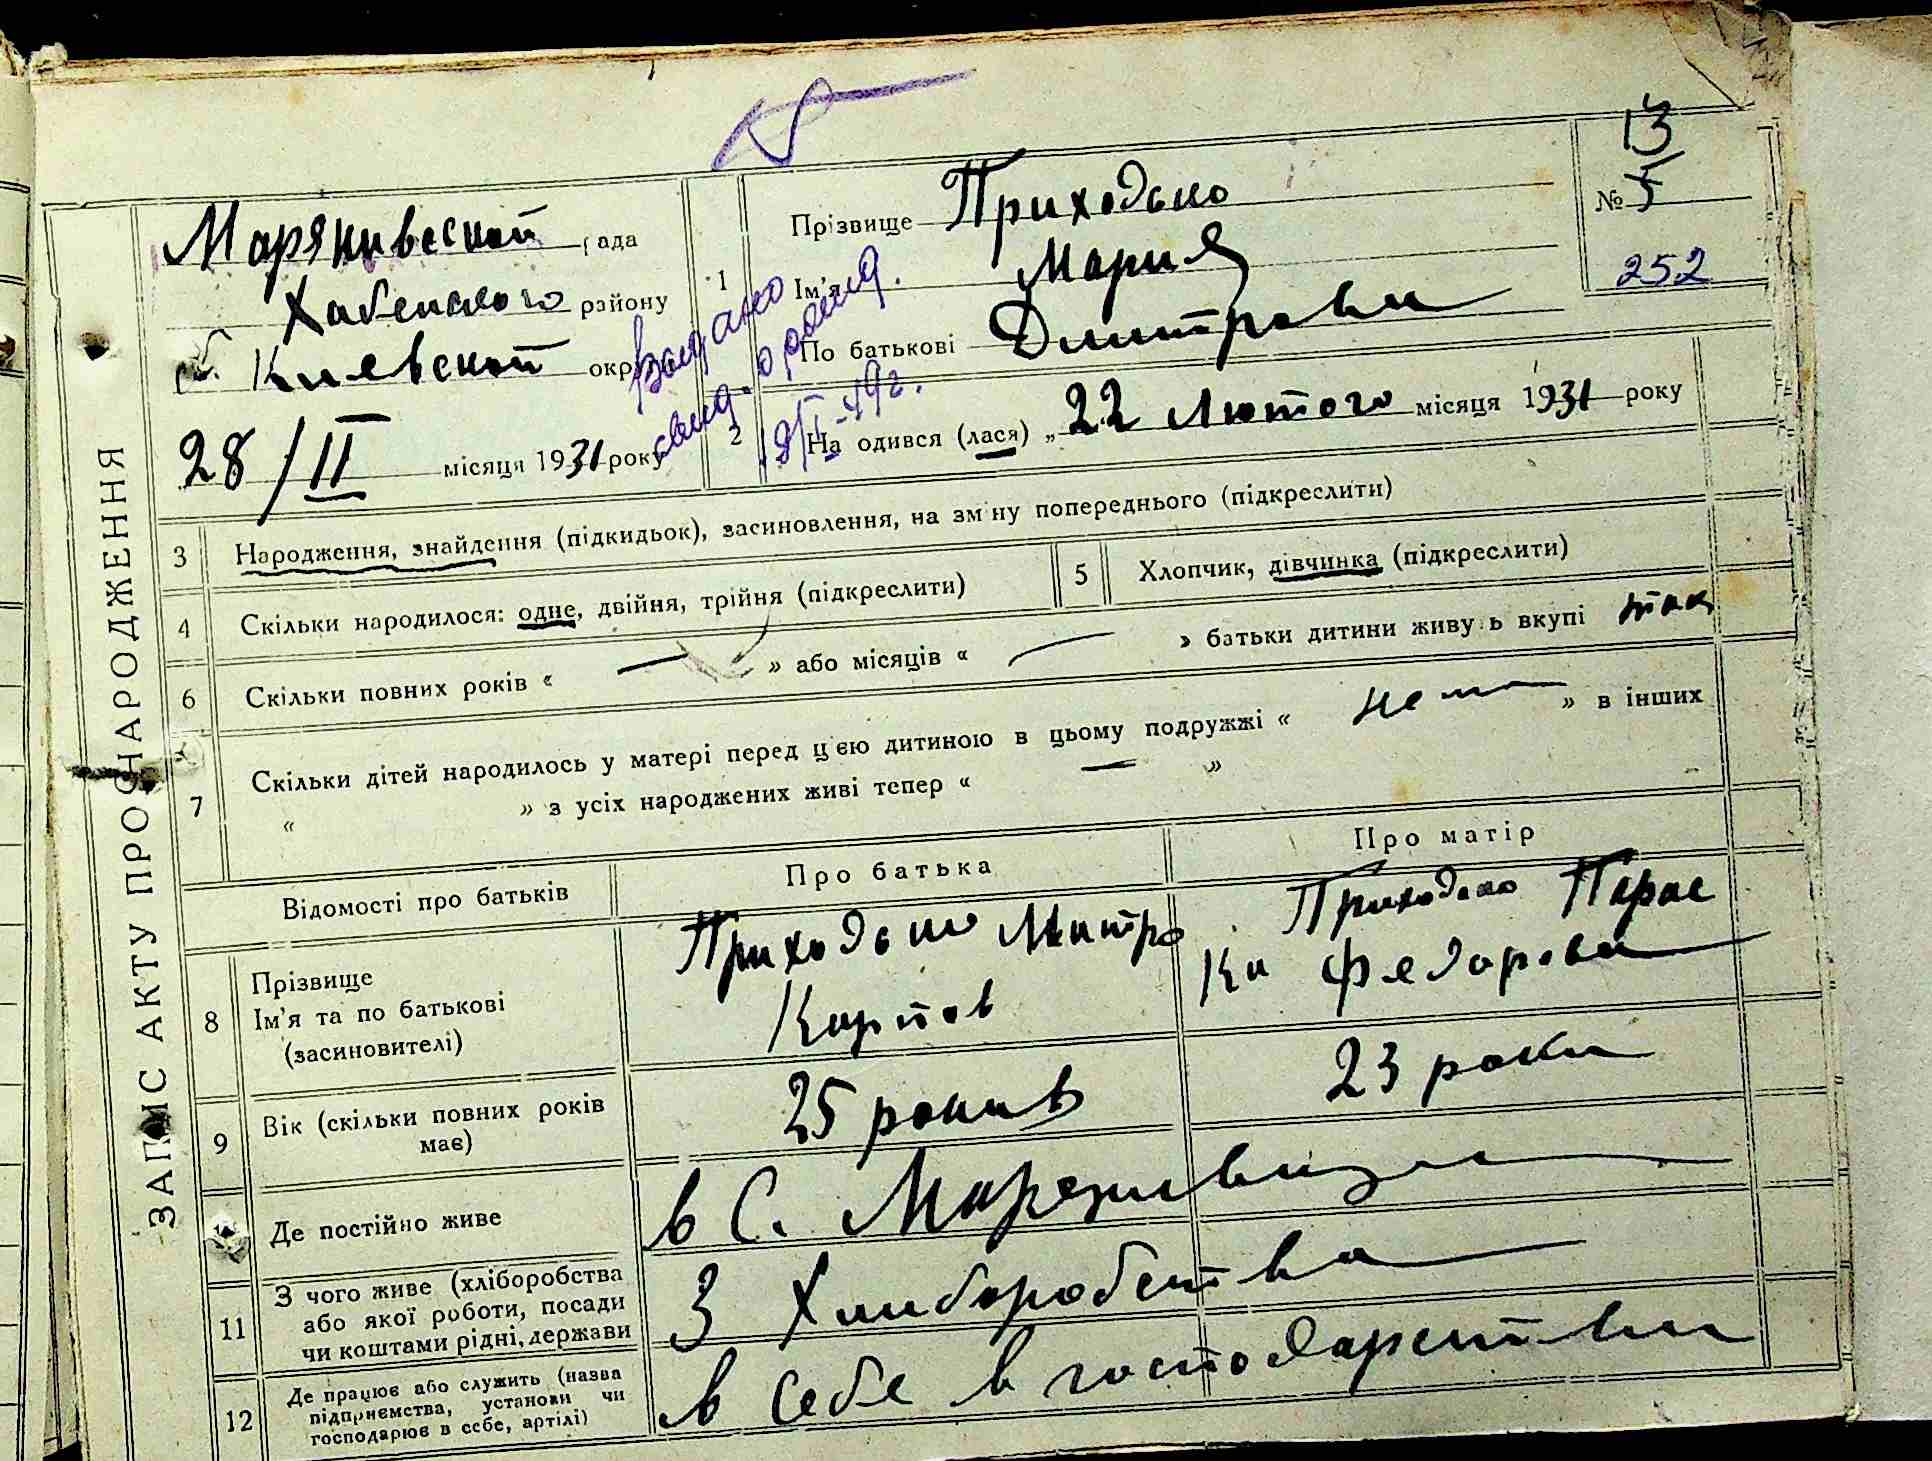 ЗАПИС АКТУ ПРО НАРОДЖЕННЯ
Марянивеской рада
Хабенского району
с. Киевской окр
28/II місяця 1931 року
Выдано
свид. о рожд.
49 г.
13
№ 5
252
1
Прізвище Приходько
Ім'я Мария
По батькові Дмитрови
2
На одився (лася) „ 22 Лютого місяця 1931 року
3 Народження, знайдення (підкидьок), засиновлення, на зміну попереднього (підкреслити)
4 Скільки народилося: одне, двійня, трійня (підкреслити)
5 Хлопчик, дівчинка (підкреслити)
6 Скільки повних років « — » або місяців « — » батьки дитини живуть вкупі так
7 Скільки дітей народилось у матері перед цією дитиною в цьому подружжі « нема » в інших
« » з усіх народжених живі тепер « — »
Відомості про батьків
Про батька
Про матір
8 Прізвище
Ім'я та по батькові
(засиновителі)
Приходько Митро
Карпов
Приходько Парас
Ки Федорови
9 Вік (скільки повних років
має)
25 рокив
23 роки
Де постійно живе
в С. Марянивци
11 З чого живе (хліборобства
або якої роботи, посади
чи коштами рідні, держави
З Хлиборобства
12 Де працює або служить (назва
підприємства, установи чи
господарює в себе, артілі)
в себе в господарстви